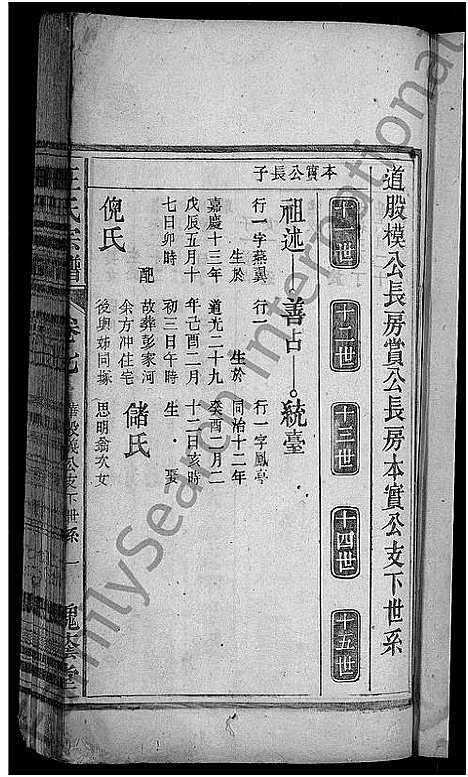 道股模公長房賞公長房本實公支下世系
十一世
十二世
十三世
十四世
十五世
本實公長子
祖述
善占
統臺
行一字燕翼
生於
嘉慶十三年
戊辰五月十
七日卯時
配
倪氏
行一
生於
道光二十九
年己酉二月
初三日午時
故葬彭家河
余方冲住宅
後與姉同塚
行一字鳳亭
同治十二年
癸酉二月二
十二日亥時
生
娶
儲氏
思明翁次女
王氏宗譜
卷七
公支下世系一
槐蔭堂
FamilySearch International